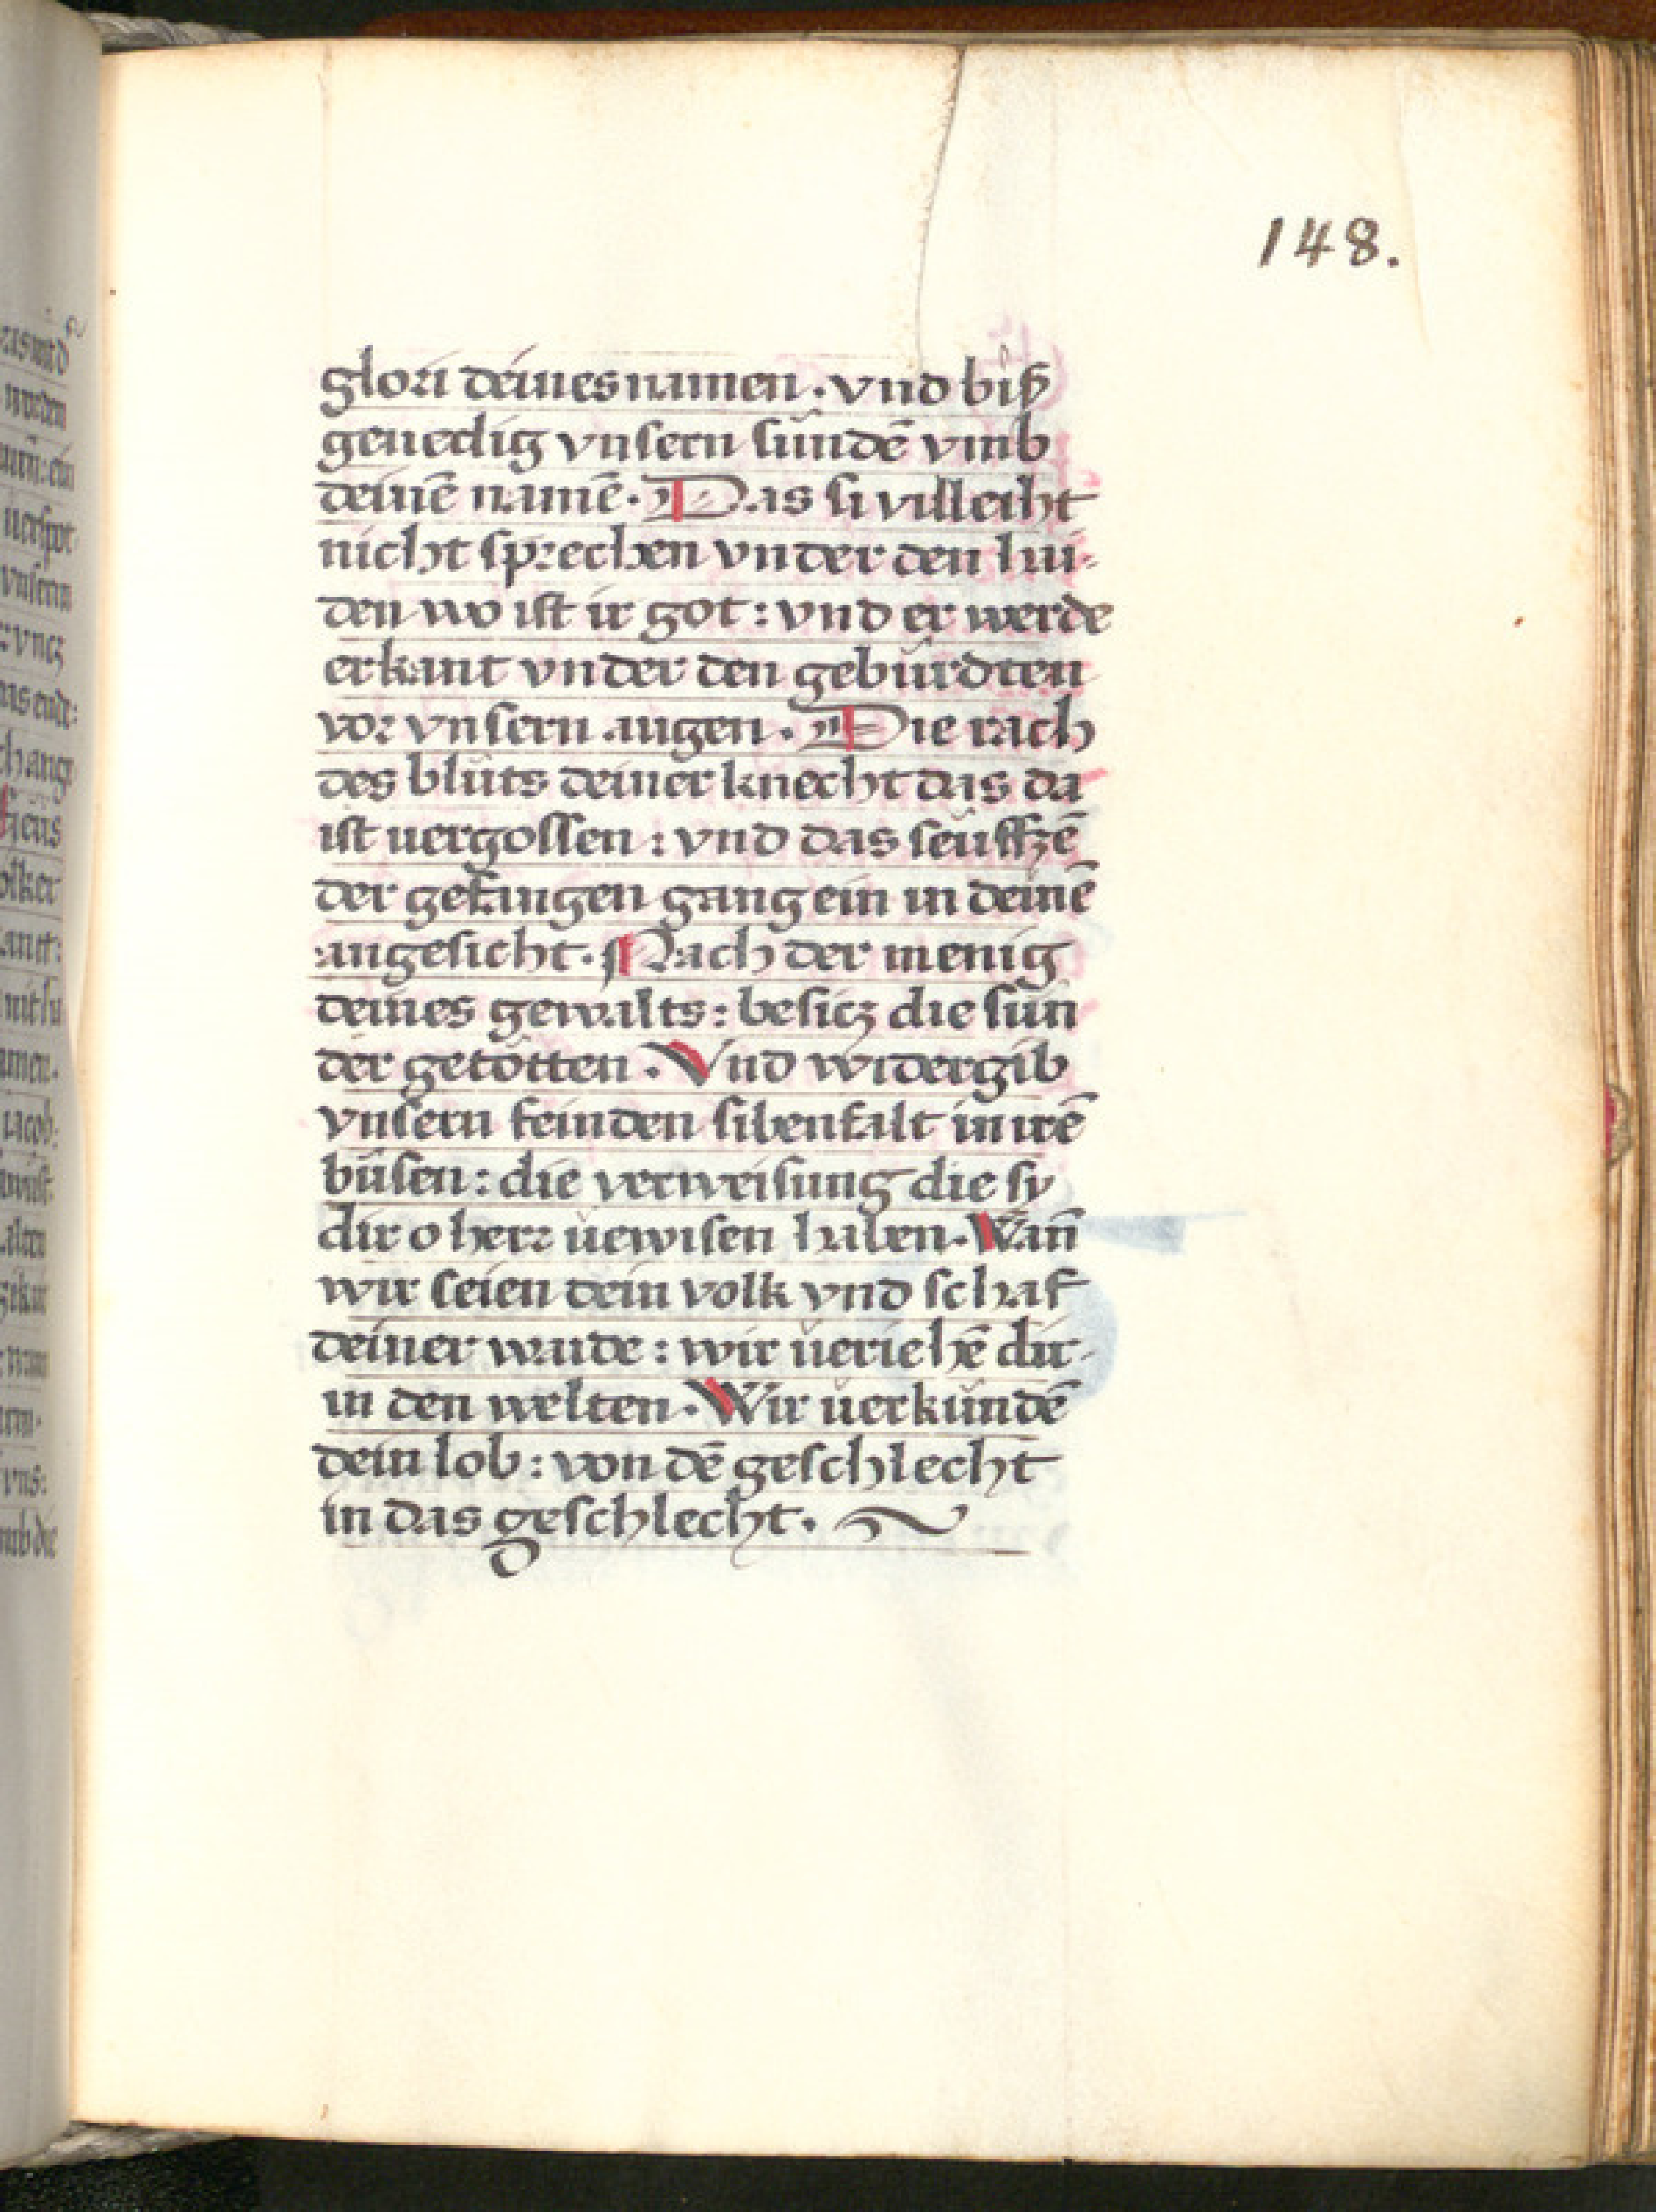 148.
glori deines namen · vnd biß
genedig vnsern sündē vmb
deinē namē · Das si villeiht
nicht sprechen vnder den hai-
den wo ist ir got : vnd er werde
erkant vnder den gebürdten
vor vnsern augen · Die rach
des blůts deiner knecht das da
ist uergossen : vnd das seüffzē
der gefangen gang ein in deinē
angesicht · Nach der menig
deines gewalts : besicz die sün
der getötten · Vnd widergib
vnsern feinden sibenfalt in irē
bůsen : die verweisung die sy
dir o herr üewisen haben · Wañ
wir seien dein volk vnd schaf
deiner waide : wir üeriehē dir
in den welten · Wir üerkündē
dein lob : von dē geschlecht
in das geschlecht ·